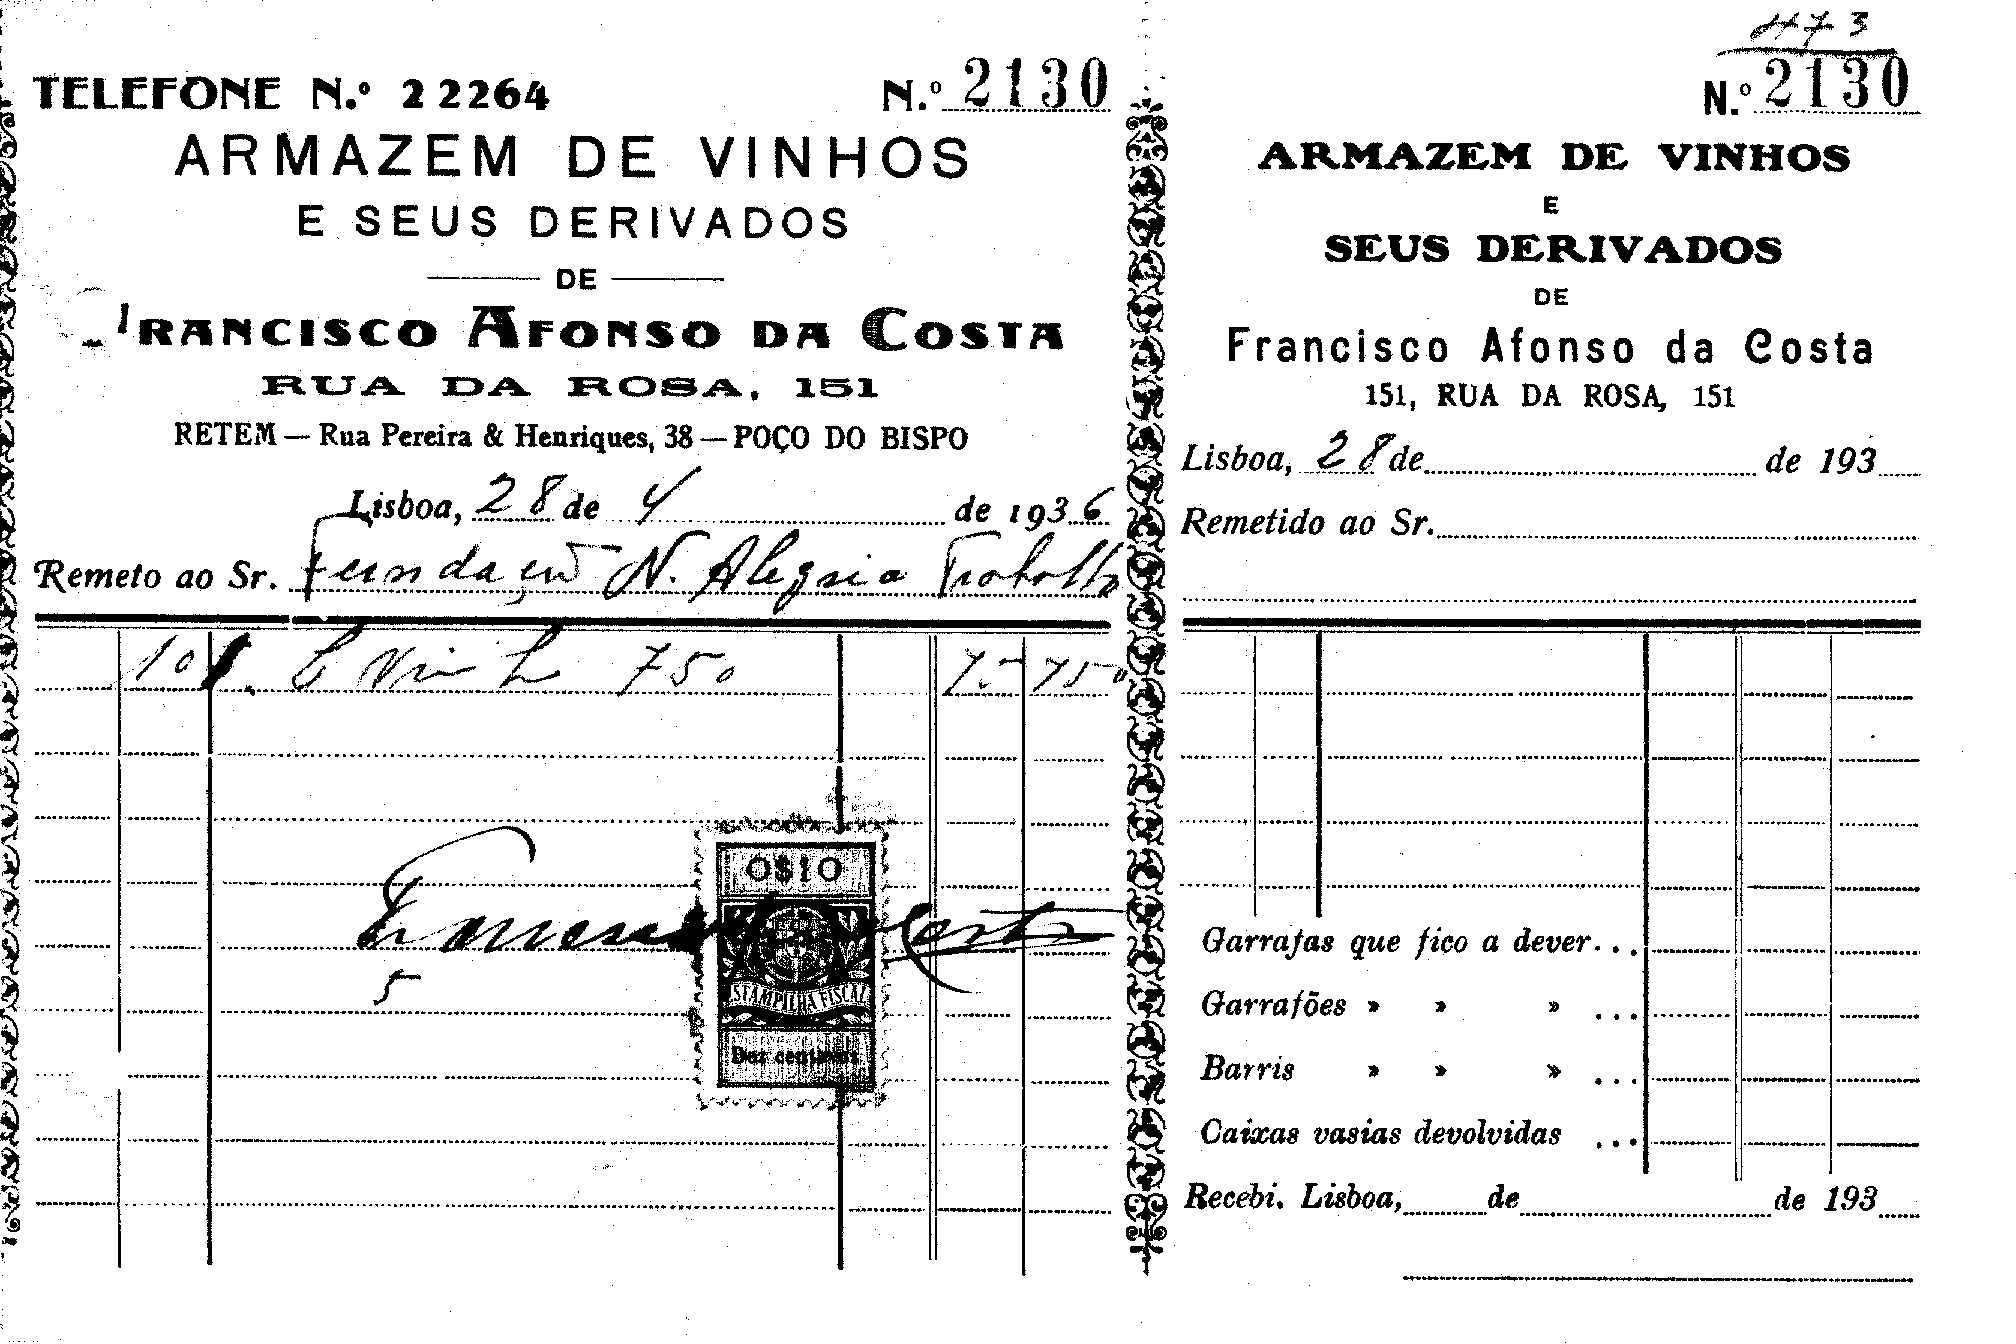 TELEFONE N.º 22264
N.º 2130
ARMAZEM DE VINHOS
E SEUS DERIVADOS
DE
FRANCISCO AFONSO DA COSTA
RUA DA ROSA, 151
RETEM — Rua Pereira & Henriques, 38 — POÇO DO BISPO
Lisboa, 28 de 4 de 1936
Remeto ao Sr. Fundação N. Alegria
10 750
O$10
ESTAMPILHA FISCAL
Dez centavos
5
473
N.º 2130
ARMAZEM DE VINHOS
E
SEUS DERIVADOS
DE
Francisco Afonso da Costa
151, RUA DA ROSA, 151
Lisboa, 28 de de 193
Remetido ao Sr.
Garrafas que fico a dever...
Garrafões » » » ...
Barris » » » ...
Caixas vasias devolvidas ...
Recebi. Lisboa, de de 193